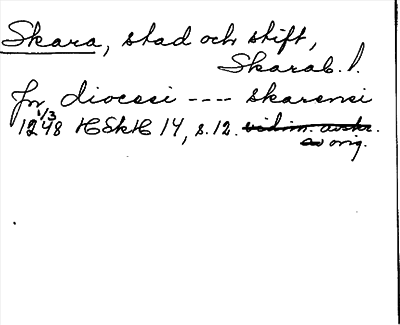 Skara, stad och stift,
Skarab. l.
fn diocesi ---- skarensi
1/3
1248 HSkH 14, s.12. vidim. avskr.
av orig.